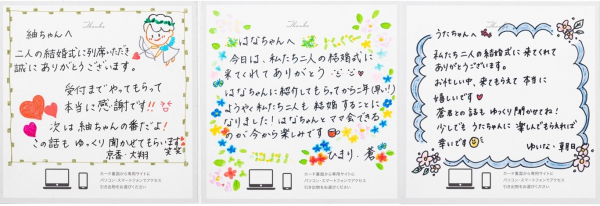 Thanks
紬ちゃんへ
二人の結婚式に列席いただき
誠にありがとうございます。
受付までやってもらって
本当に感謝です!!
次は紬ちゃんの番だよ!
この話もゆっくり聞かせてもらいます
京香・大翔
Thanks
はなちゃんへ
今日は、私たち二人の結婚式に
来てくれてありがとう
はなちゃんに紹介してもらってから二年(早い!)
ようやく私たち二人も結婚することに
なりました!はなちゃんとママ会できる
のが今から楽しみです
ひまり・蒼
カード裏面から専用サイトに
パソコン・スマートフォンでアクセス
引き出物をお選びください
Thanks
うたちゃんへ
私たち二人の結婚式に来てくれて
ありがとうございます。
お忙しい中、来てもらえて本当に
嬉しいです
蒼君との話もゆっくり聞かせてね!
少しでもうたちゃんに楽しんでもらえれば
幸いです
ゆいな・朝日
カード裏面から専用サイトに
パソコン・スマートフォンでアクセス
引き出物をお選びください